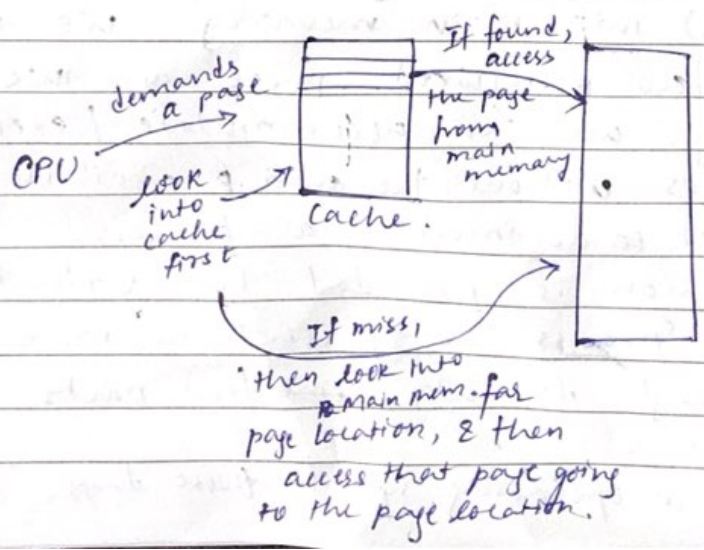 demands
a page
CPU
look
into
cache
first
Cache.
If found,
access
the page
from
main
memory
If miss,
then look into
main mem. for
page location, & then
access that page going
to the page location.